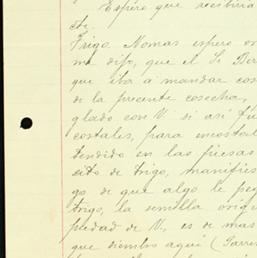 Espero que recibiria
etc.
Trigo. Nomas espero
me dijo, que el Sr
que iba á mandar
de la presente cosecha,
glado con V. si así
costales, para
tendido en las piesas
sito de trigo,
go de que algo le
trigo, la semilla
piedad de V., es de mas
que siembro aqui